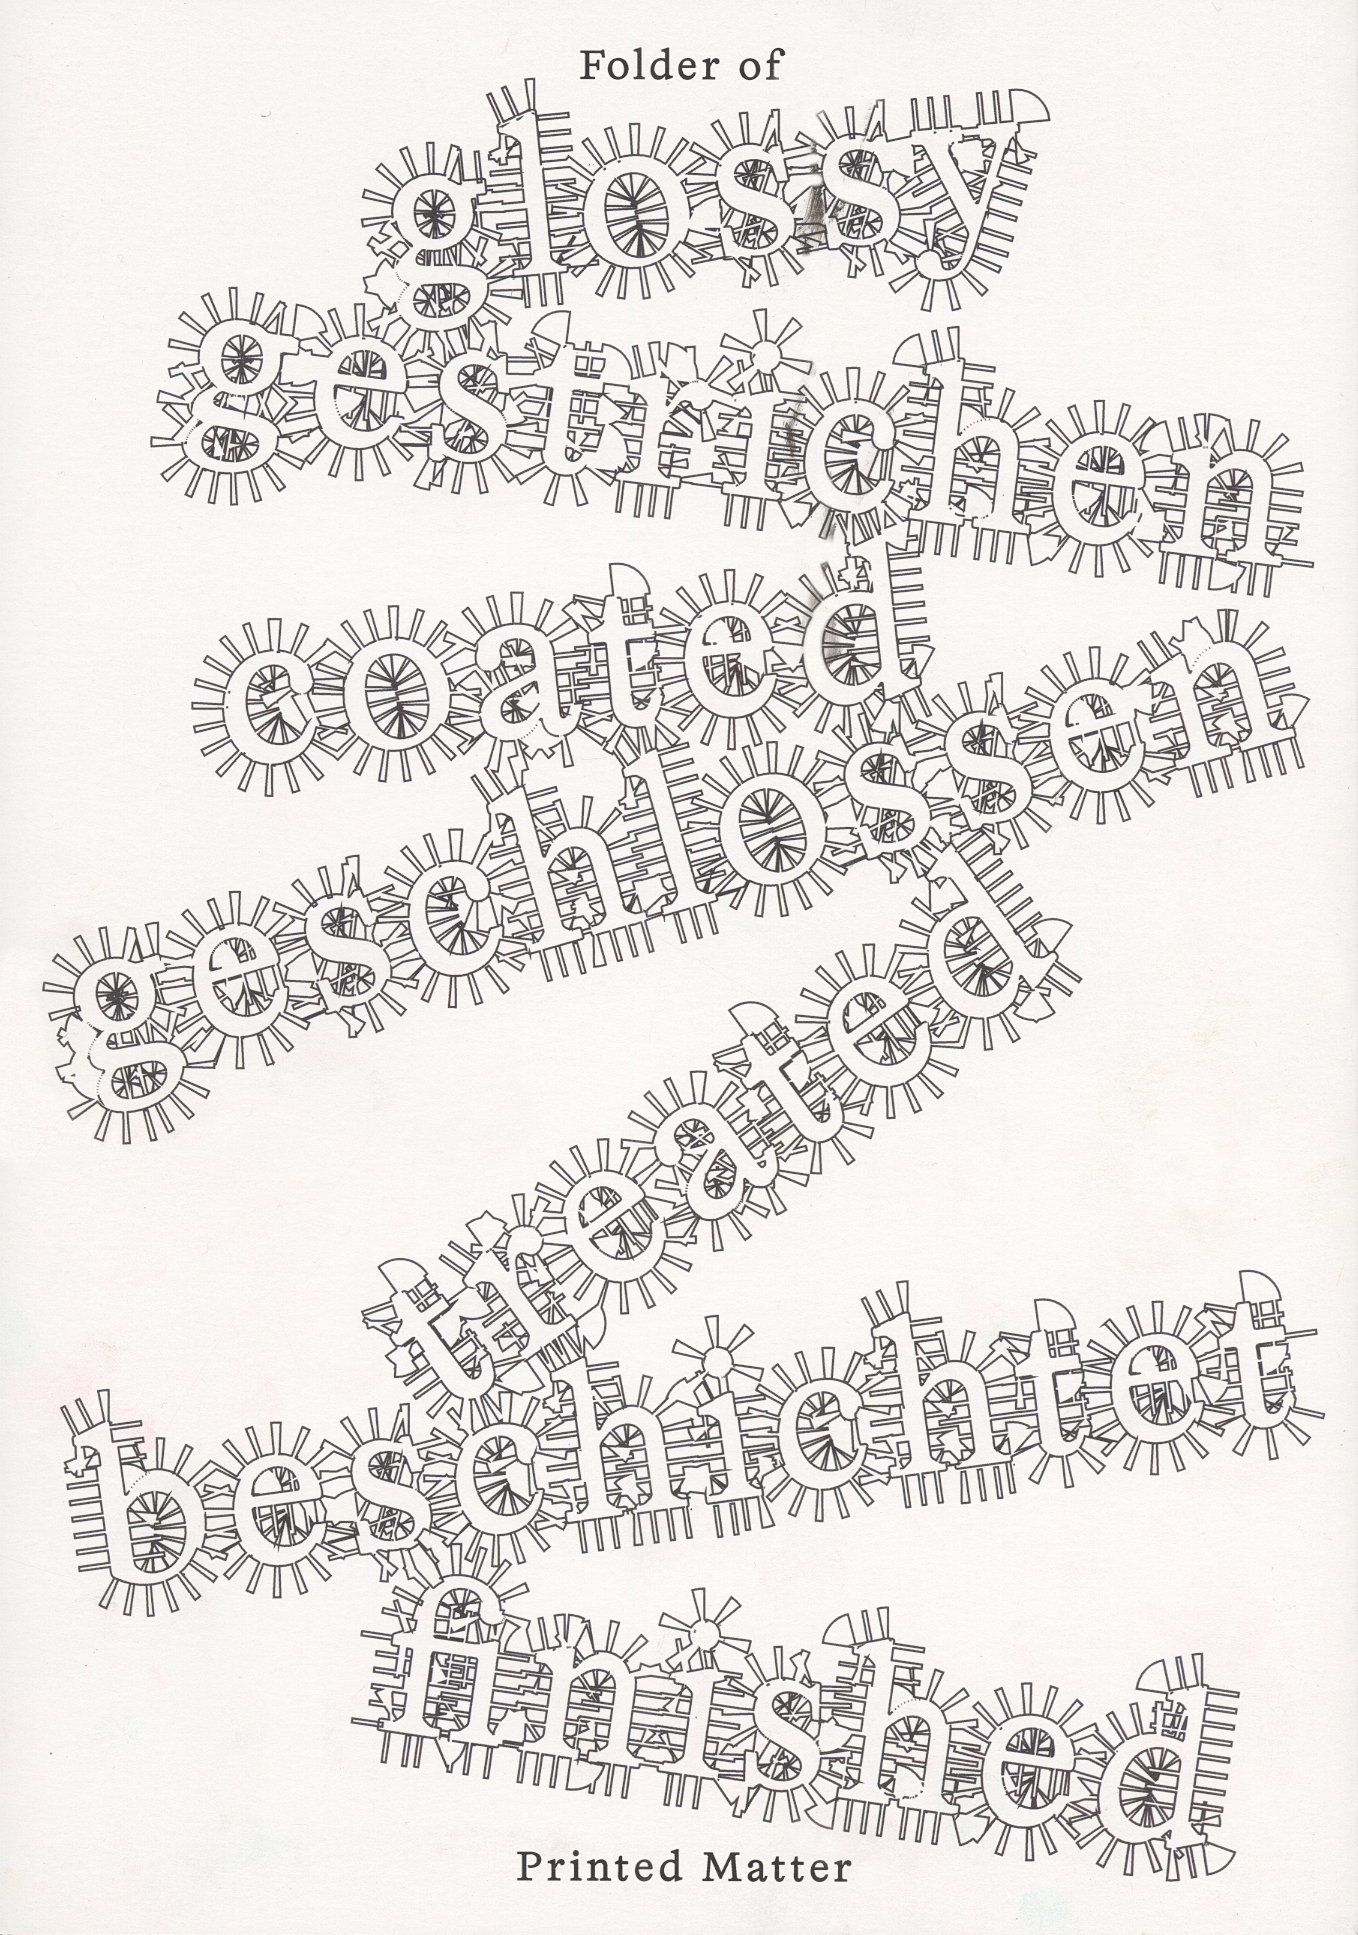 Folder of
glossy
gestrichen
coated
geschlossen
treated
beschichtet
finished
Printed Matter